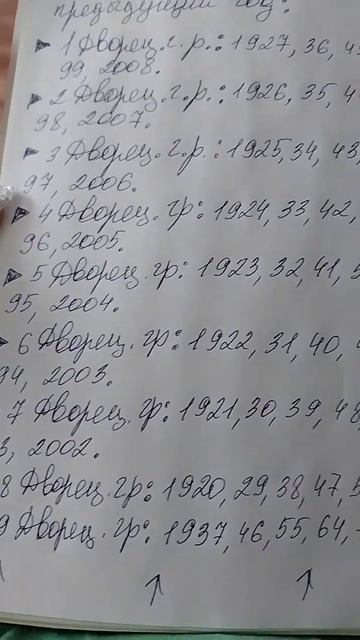 предыдущий год:
1 Дворец. г. р.: 1927, 36, 4
99, 2008.
2 Дворец. г. р.: 1926, 35, 4
98, 2007.
3 Дворец. г. р.: 1925, 34, 43,
97, 2006.
4 Дворец. гр: 1924, 33, 42,
96, 2005.
5 Дворец. гр: 1923, 32, 41, 5
95, 2004.
6 Дворец. гр: 1922, 31, 40, 4
94, 2003.
7 Дворец. гр: 1921, 30, 39, 48,
3, 2002.
8 Дворец. гр: 1920, 29, 38, 47, 5
9 Дворец. гр: 1937, 46, 55, 64,